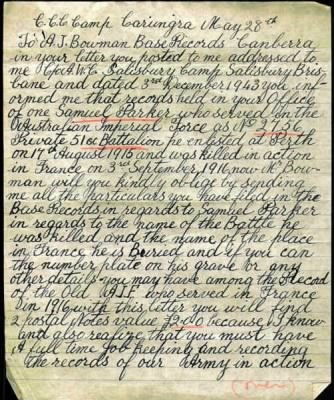 C.C.C Camp Carungra May 28th
To A.J. Bowman Base Records Canberra
in your letter you posted to me addressed to
me Salisbury Camp Salisbury Bris-
bane and dated 3rd December 1943 you in-
formed me that records held in your Office
of one Samuel Parker who served in the
Australian Imperial Force as No
Private 51st Battalion he enlisted at Perth
on 17th August 1915 and was killed in action
in France on 3rd September 1916 now Mr Bow-
man will you kindly oblige by sending
me all the particulars you have filed in the
Base Records in regards to Samuel Parker
in regards to the name of the Battle he
was killed and the name of the place
in France he is Buried and if you can
the number plate on his grave or any
other details you may have among the Record
of the Old A.I.F. who served in France
in 1916 with this litter you will find
2 postal Notes value because I know
and also realize that you must have
A full time Job keeping and recording
the records of our Army in action
(over)